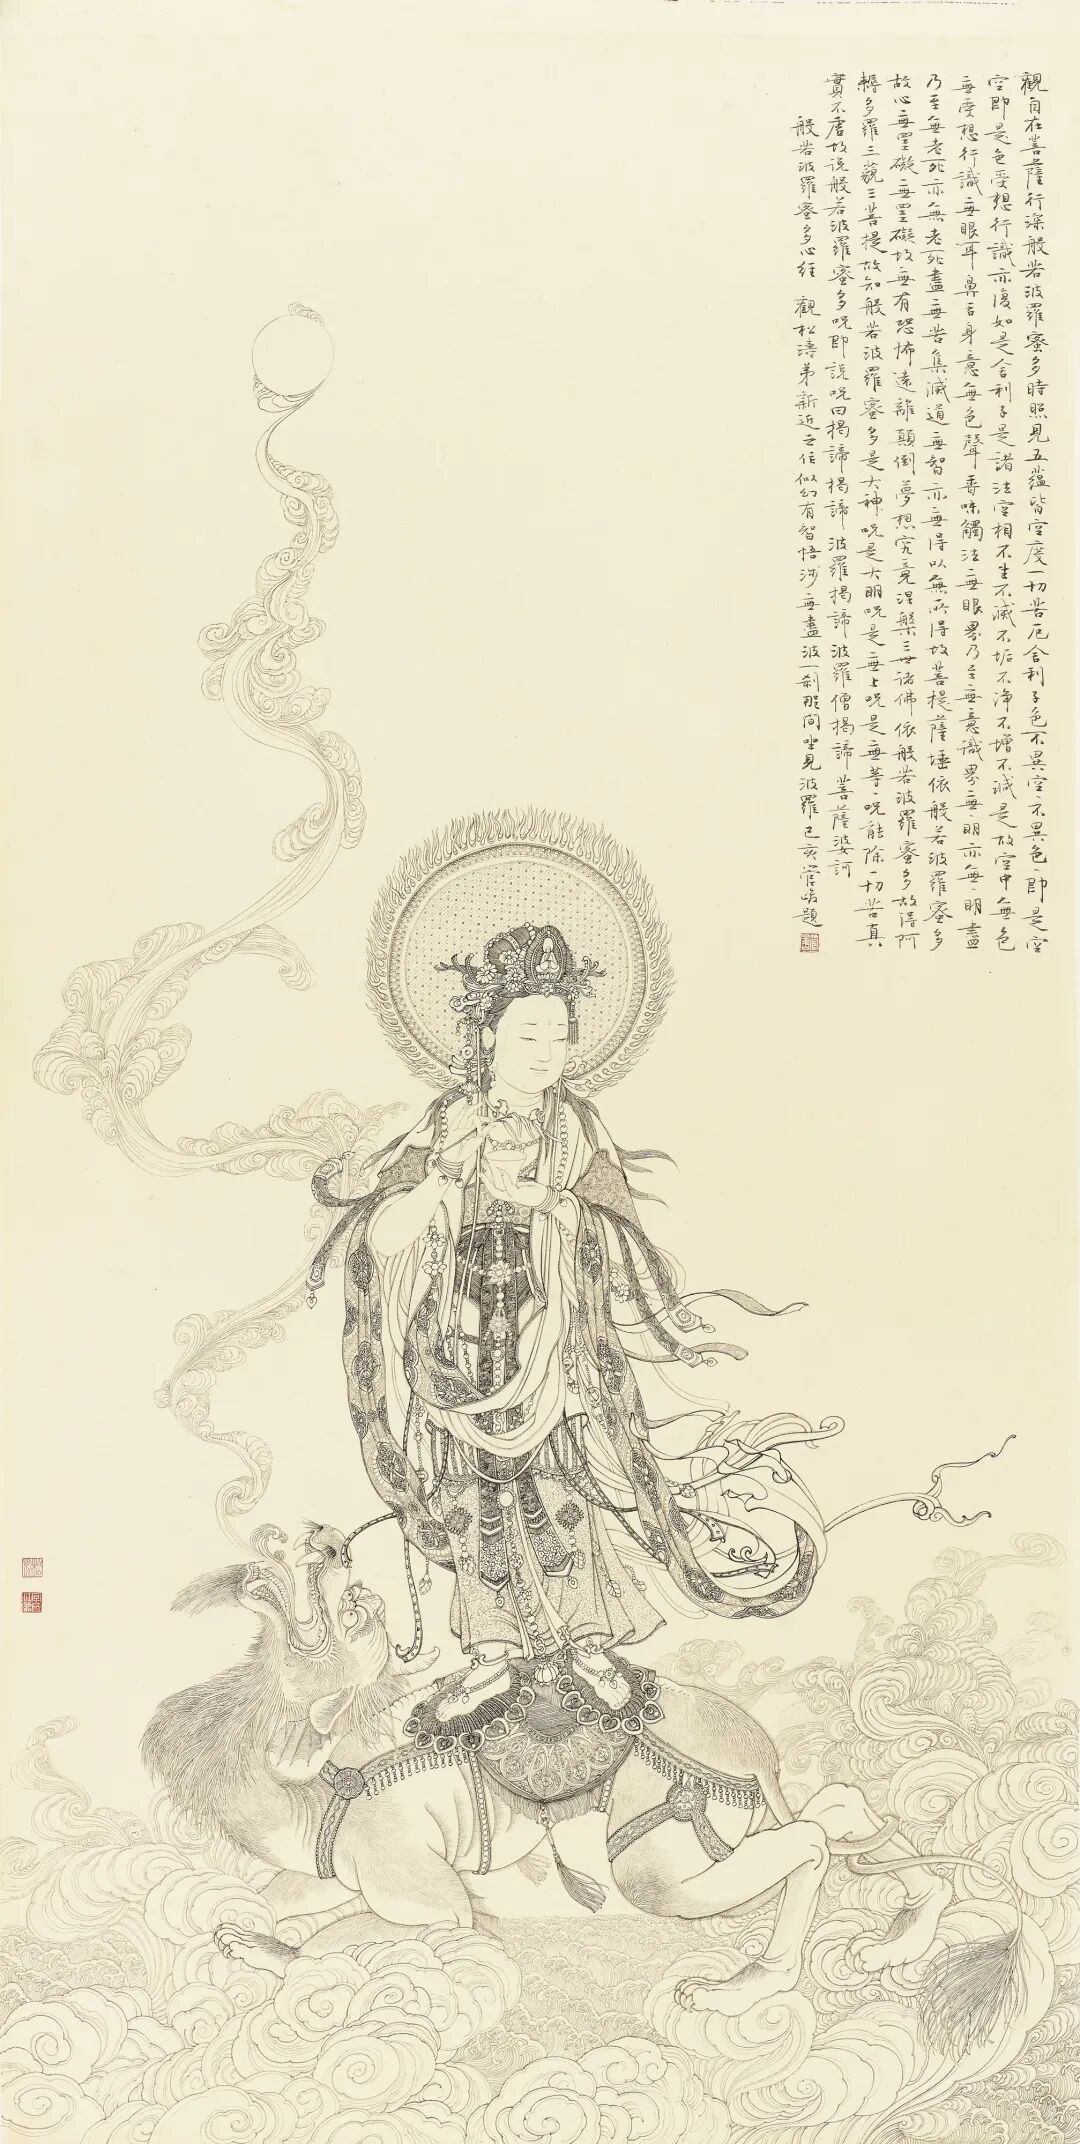 觀自在菩薩行深般若波羅蜜多時照見五蘊皆空度一切苦厄舍利子色不異空〻不異色〻即是空
空即是色受想行識亦復如是舍利子是諸法空相不生不滅不垢不淨不增不減是故空中無色
無受想行識無眼耳鼻舌身意無色聲香味觸法無眼界乃至無意識界無〻明亦無〻明盡
乃至無老死亦無老死盡無苦集滅道無智亦無得以無所得故菩提薩埵依般若波羅蜜多
故心無罣礙無罣礙故無有恐怖遠離顛倒夢想究竟涅槃三世諸佛依般若波羅蜜多故得阿
耨多羅三藐三菩提故知般若波羅蜜多是大神呪是大明呪是無上呪是無等〻呪能除一切苦真
實不虛故說般若波羅蜜多呪即說呪曰揭諦揭諦波羅揭諦波羅僧揭諦菩薩婆訶
般若波羅蜜多心經 觀松濤弟新近之作似幻有智悟涉無盡波一刹那間坐見波羅己亥管峻題